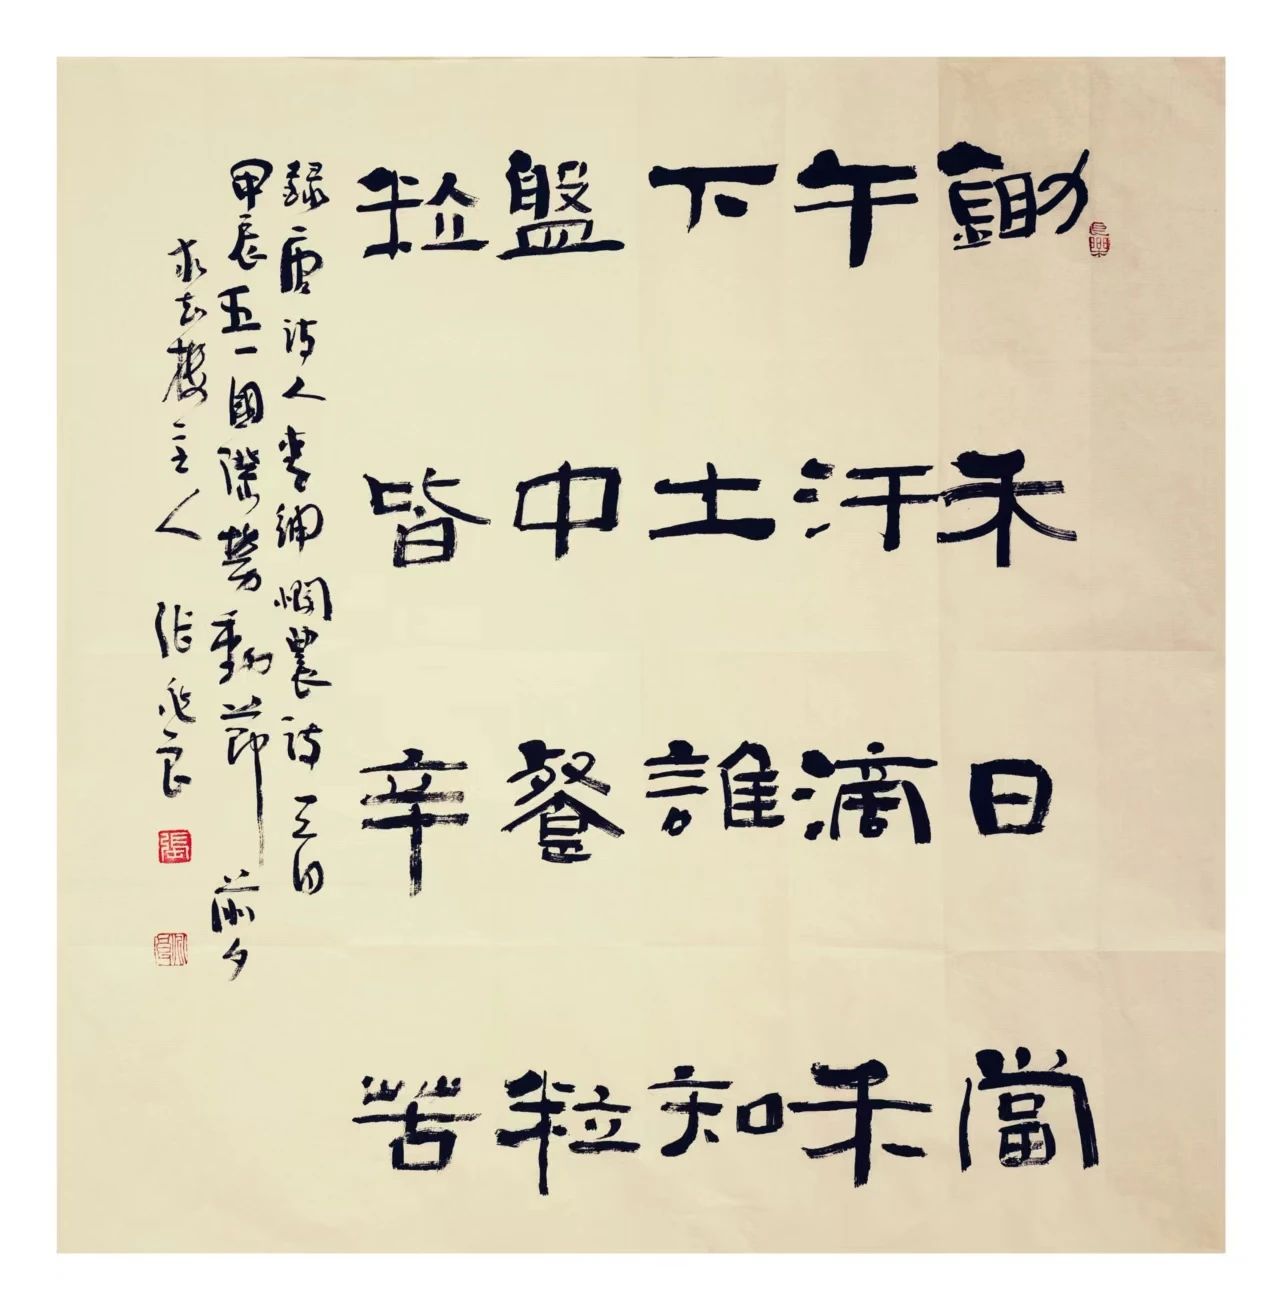 鋤禾日當
午汗滴禾
下土誰知
盤中餐粒
粒皆辛苦
錄唐詩人李紳憫農詩
甲辰五一國際勞動節前夕
樓主人 張良
張